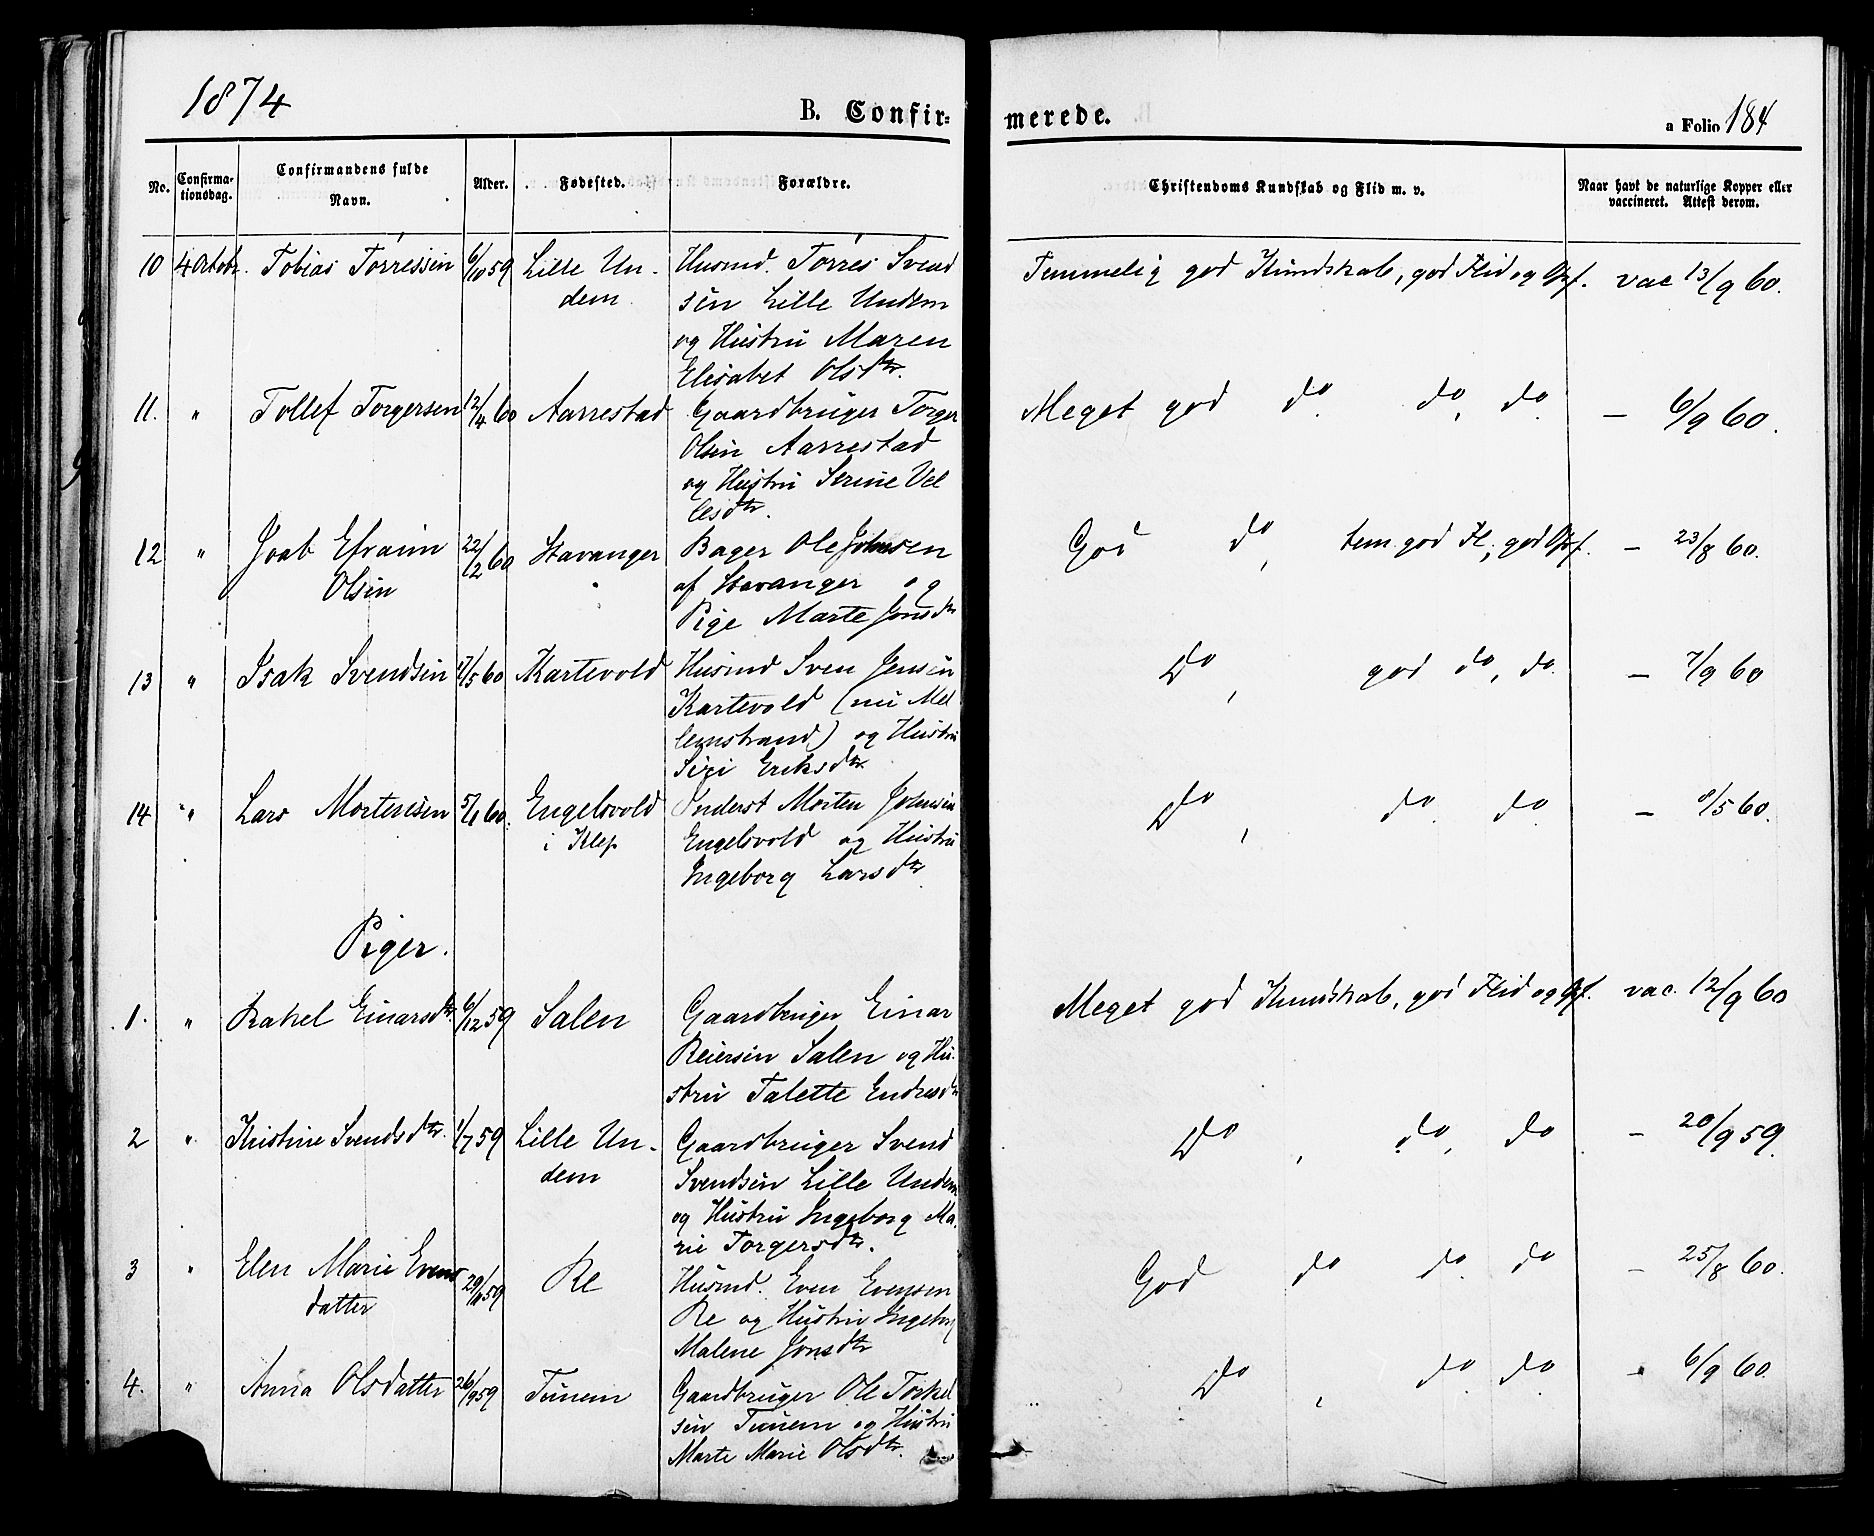 1874
B. Confirmerede.
a Folio 184
No. Confirmationsdag. Confirmandens fulde Navn. Alder. Fødested. Forældre. Christendoms Kundskab og Flid m. v. Naar havt de naturlige Kopper eller vaccineret. Attest derom.
10 4 Octobr. Tobias Tørressen 6/10 59 Lille Un- Husmd. Tørres Svend Temmelig god Kundskab, god Flid og Opf. vac 13/9 60.
dem sen Lille Undem
og Hustru Maren
Elisabet Olsdtr.
11. " Tollef Torgersen 12/4 60 Aarrestad Gaardbruger Torger Meget god do do, do — 6/9 60.
Olsen Aarrestad
og Hustru Serine Vel
lesdtr.
12 " Joab Efraim 22/2 60 Stavanger Bager Ole Johnsen God do, tem. god Fl, god Opf. — 23/8 60.
Olsen af Stavanger og
Pige Marte Jonsdtr
13 " Isak Svendsen 17/5 60 Kartevold Husmd Sven Jensen Do, god do, do — 7/9 60
Kartevold (nu Mel
lemstrand) og Hustru
Siri Eriksdtr.
14 " Lars Mortensen 5/1 60. Engelsvold Inderst Morten Johnsen Do, do do — 8/5 60.
i Klep Engelsvold og Hustru
Ingeborg Larsdtr
Piger.
1. " Rakel Einarsdtr. 6/12 59 Salen Gaardbruger Einar Meget god Kundskab, god Flid og Opf. vac. 12/9 60
Reiersen Salen og Hu-
stru Talette Endresdtr
2 " Kristine Svendsdtr. 1/7 59 Lille Un- Gaardbruger Svend Do, do, do — 20/9 59.
dem Svendsen Lille Undem
og Hustru Ingeborg Ma-
rie Torgersdtr.
3 " Elen Marie Evens 29/11 59 Re Husmd. Even Evensen God do do. do — 25/8 60.
datter Re og Hustru Ingeborg
Malene Jonsdtr
4. " Anna Olsdatter 26/9 59 Tunem Gaardbruger Ole Torkel Do, do do - 6/9 60.
sen Tunem og Hustru
Marte Marie Olsdtr.